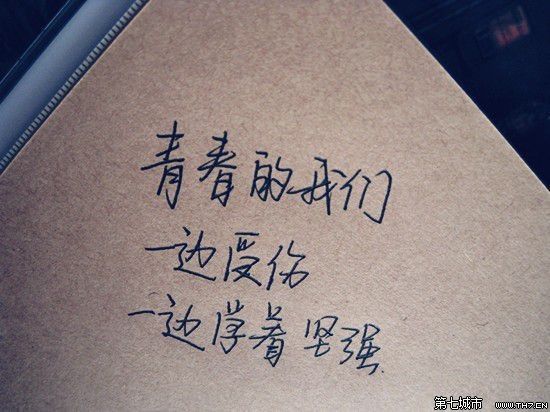 青春的我们
一边受伤
一边学着坚强
第七城市 WWW.TH7.CN